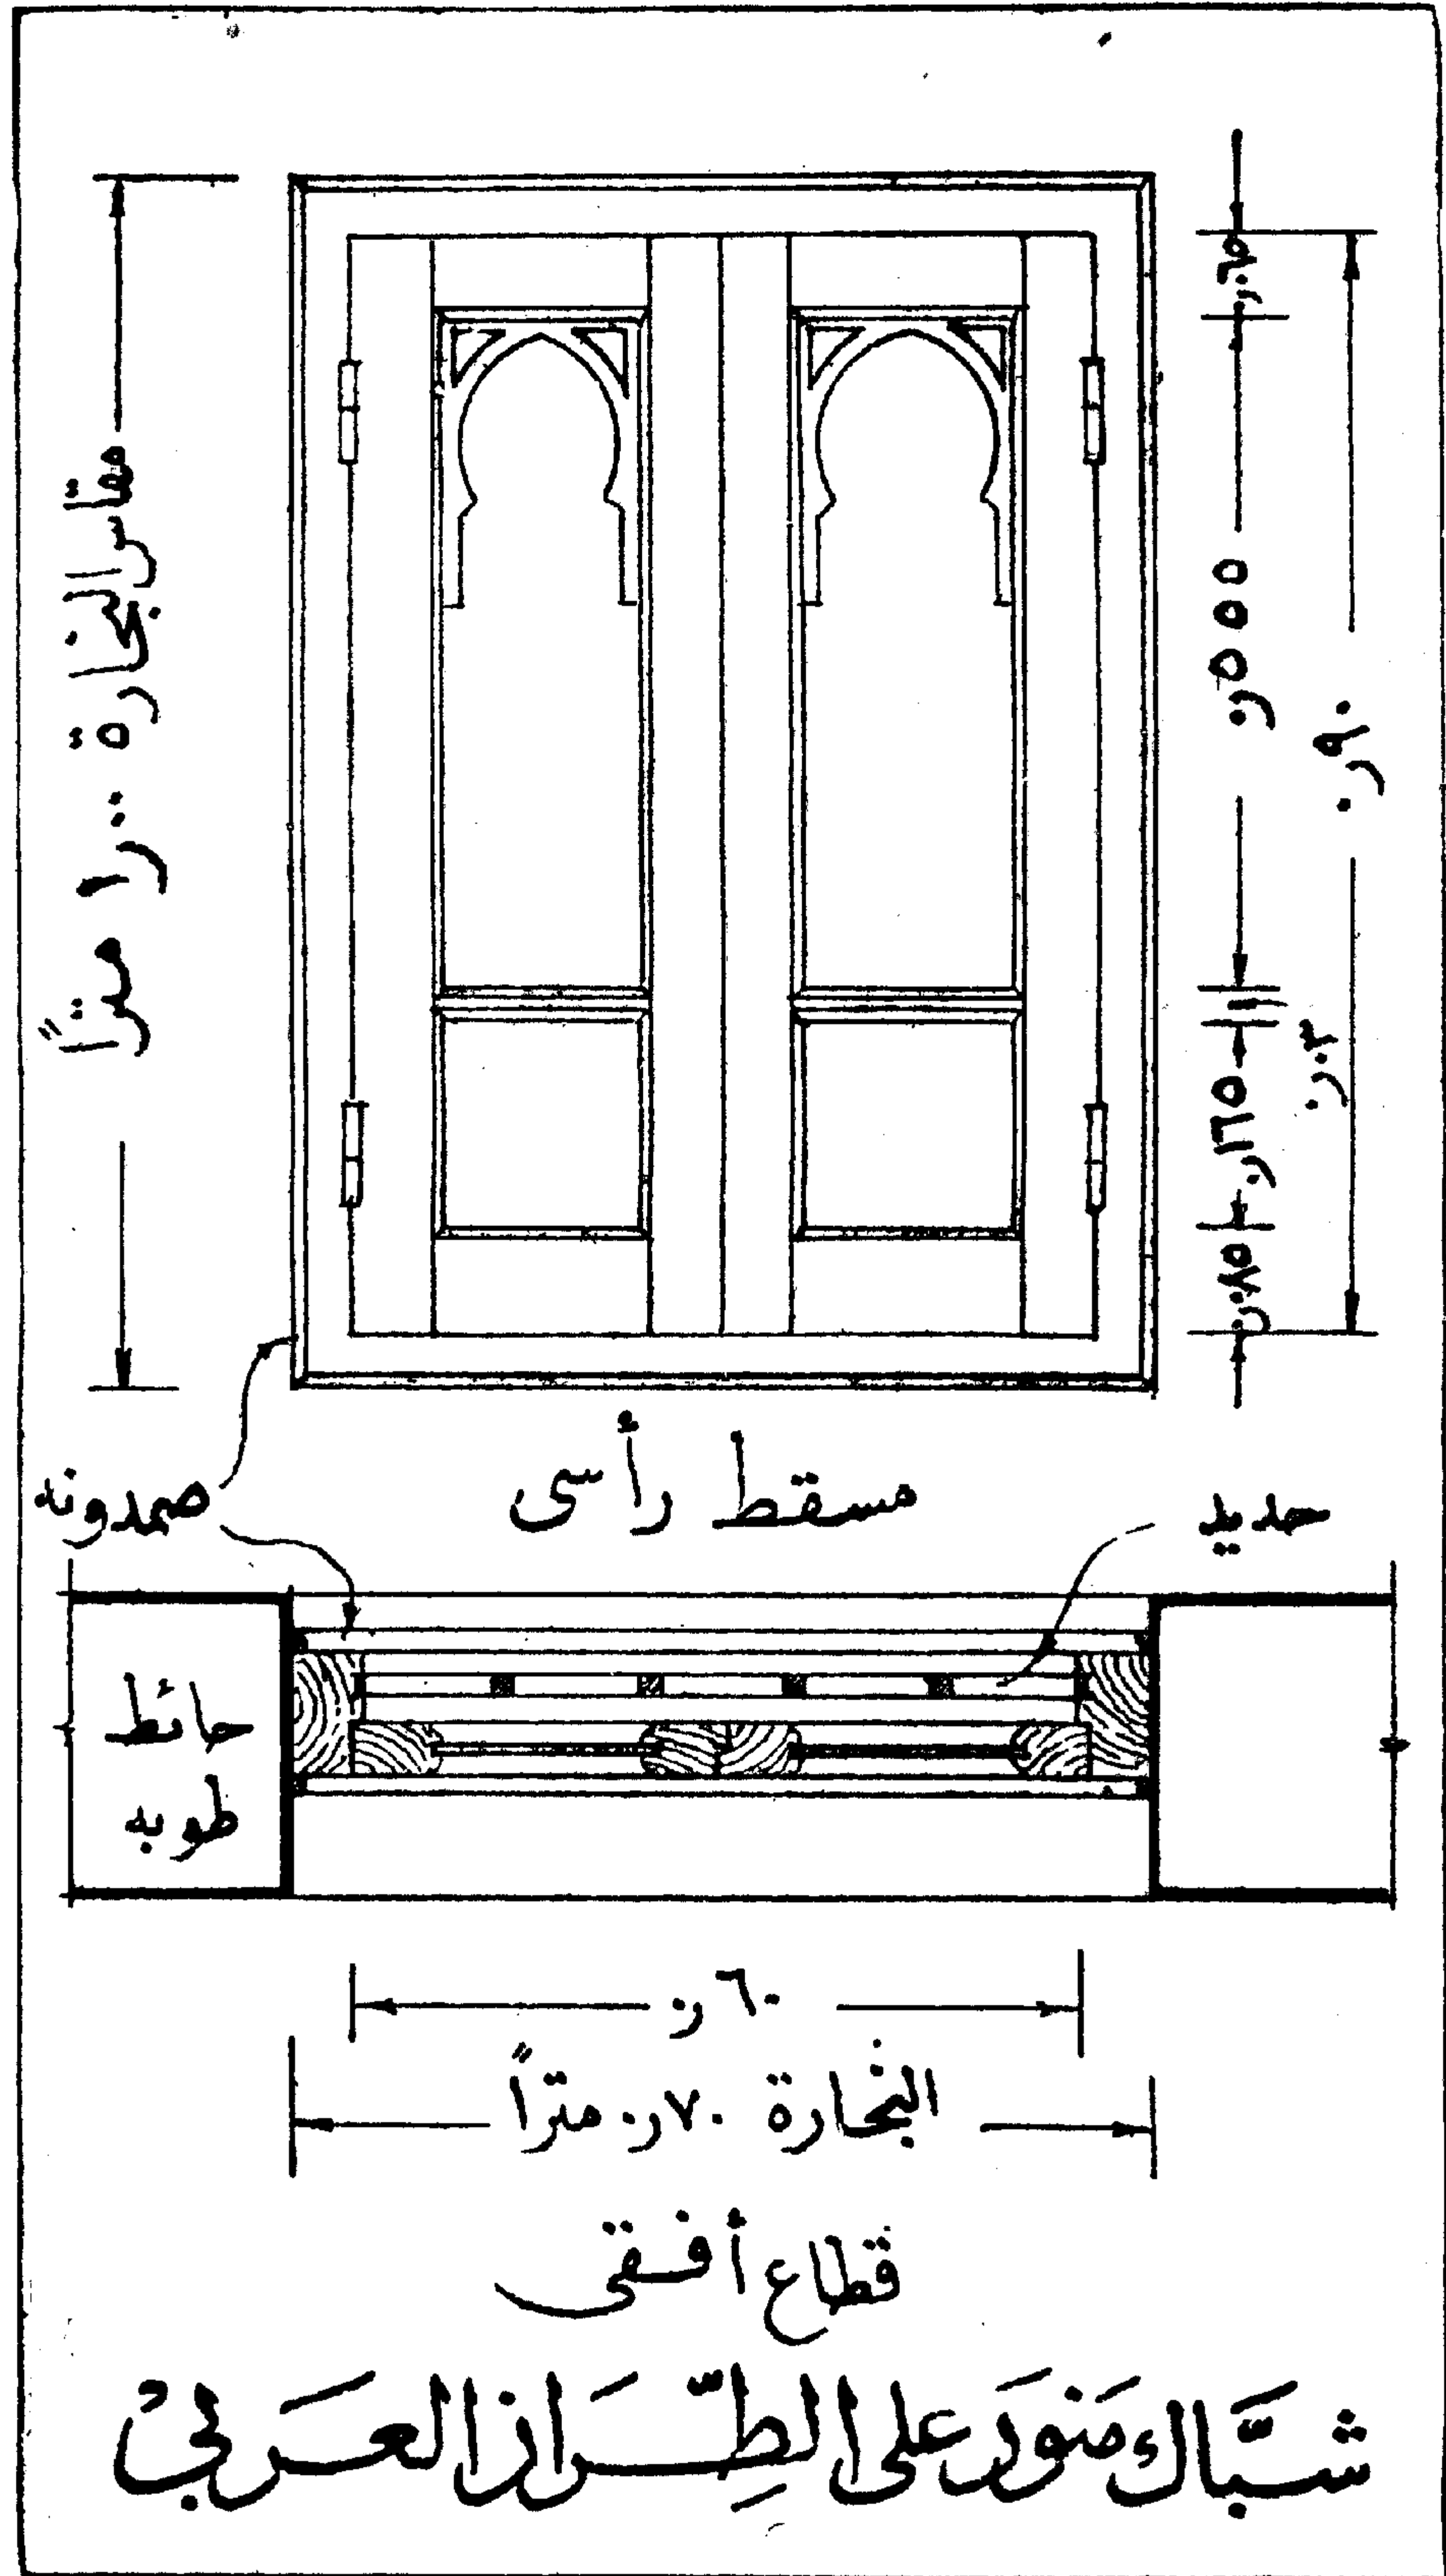 مقاس النجارة ١٫٠٠ متراً
٠٫٠٦٥
٠٫٥٥٥
٠٫٩٠
٠٫٠٣
٠٫١٦٥
٠٫٠٨٥
مسقط رأسى
صمدونه
حديد
حائط
طوبه
٠٫٦٠
النجارة ٠٫٧٠ متراً
قطاع أفقى
شبَّاك مَنوَر على الطِّرَاز العَرَبي